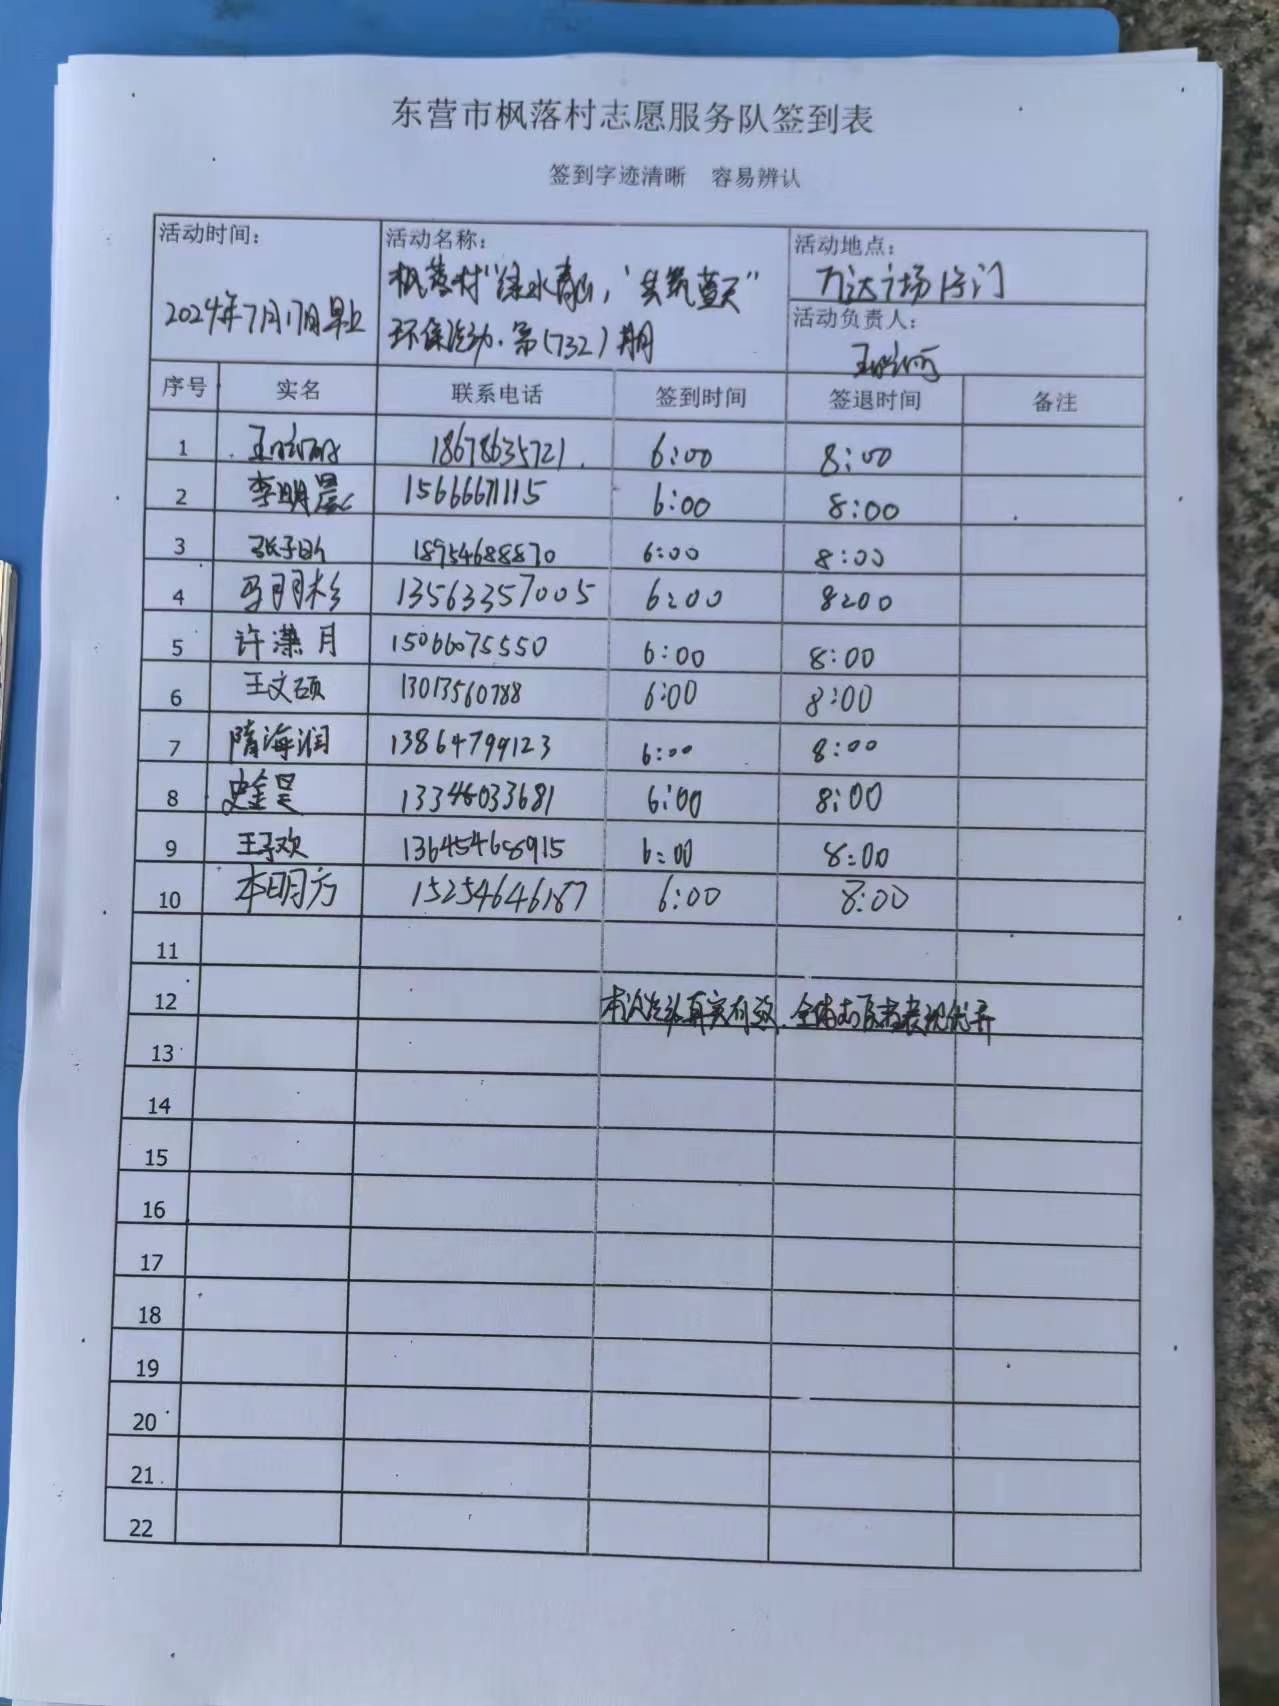 东营市枫落村志愿服务队签到表
签到字迹清晰 容易辨认
活动时间: 活动名称: 活动地点:
枫落村"绿水青山,"共筑蓝天" 万达广场
2024年7月17日早上 环保活动.第(732)期 活动负责人:
序号 实名 联系电话 签到时间 签退时间 备注
1 18678635721 6:00 8:00
2 李明晨 15666671115 6:00 8:00
3 18954688870 6:00 8:00
4 13563357005 6:00 8:00
5 许潇月 15066075550 6:00 8:00
6 王文硕 13013560788 6:00 8:00
7 隋海润 13864799123 6:00 8:00
8 史金昊 13346033681 6:00 8:00
9 王子欢 13645468915 6:00 8:00
10 15254646187 6:00 8:00
11
12 本次活动真实有效.全体志愿者表现优异
13
14
15
16
17
18
19
20
21
22